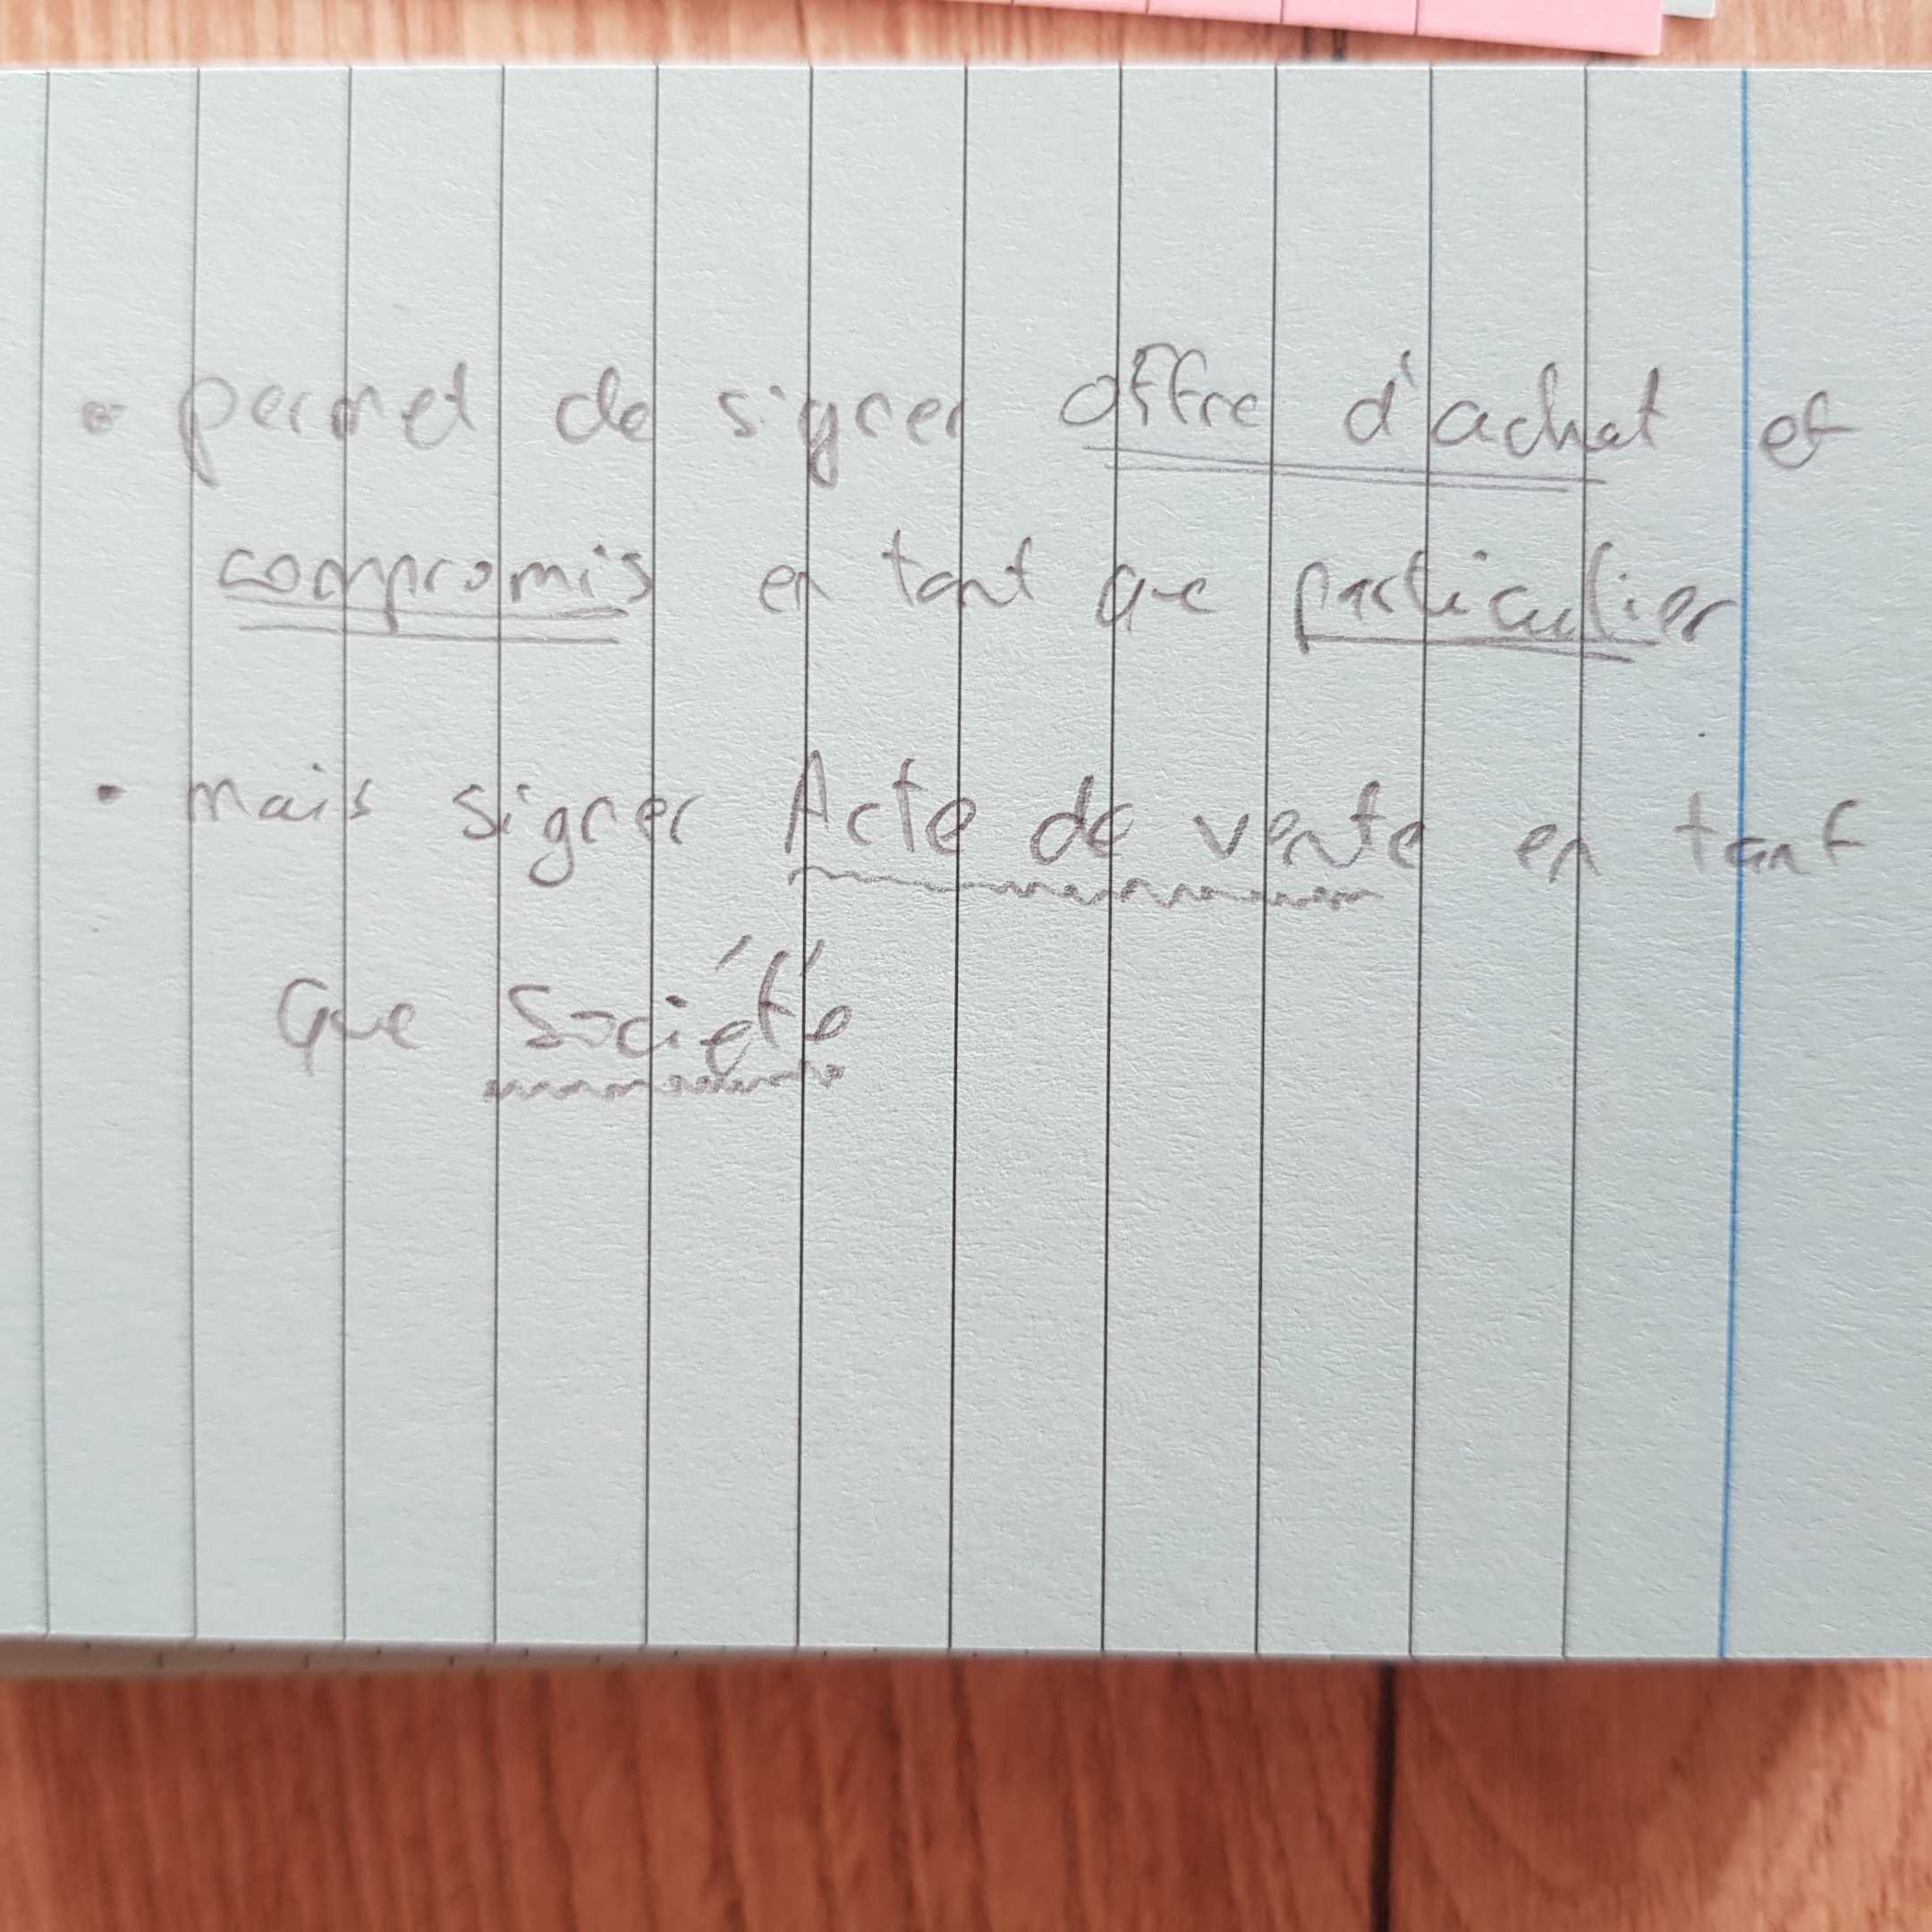 • permet de signer offre d'achat et
compromis en tant que particulier
• mais signer Acte de vente en tant
que Société